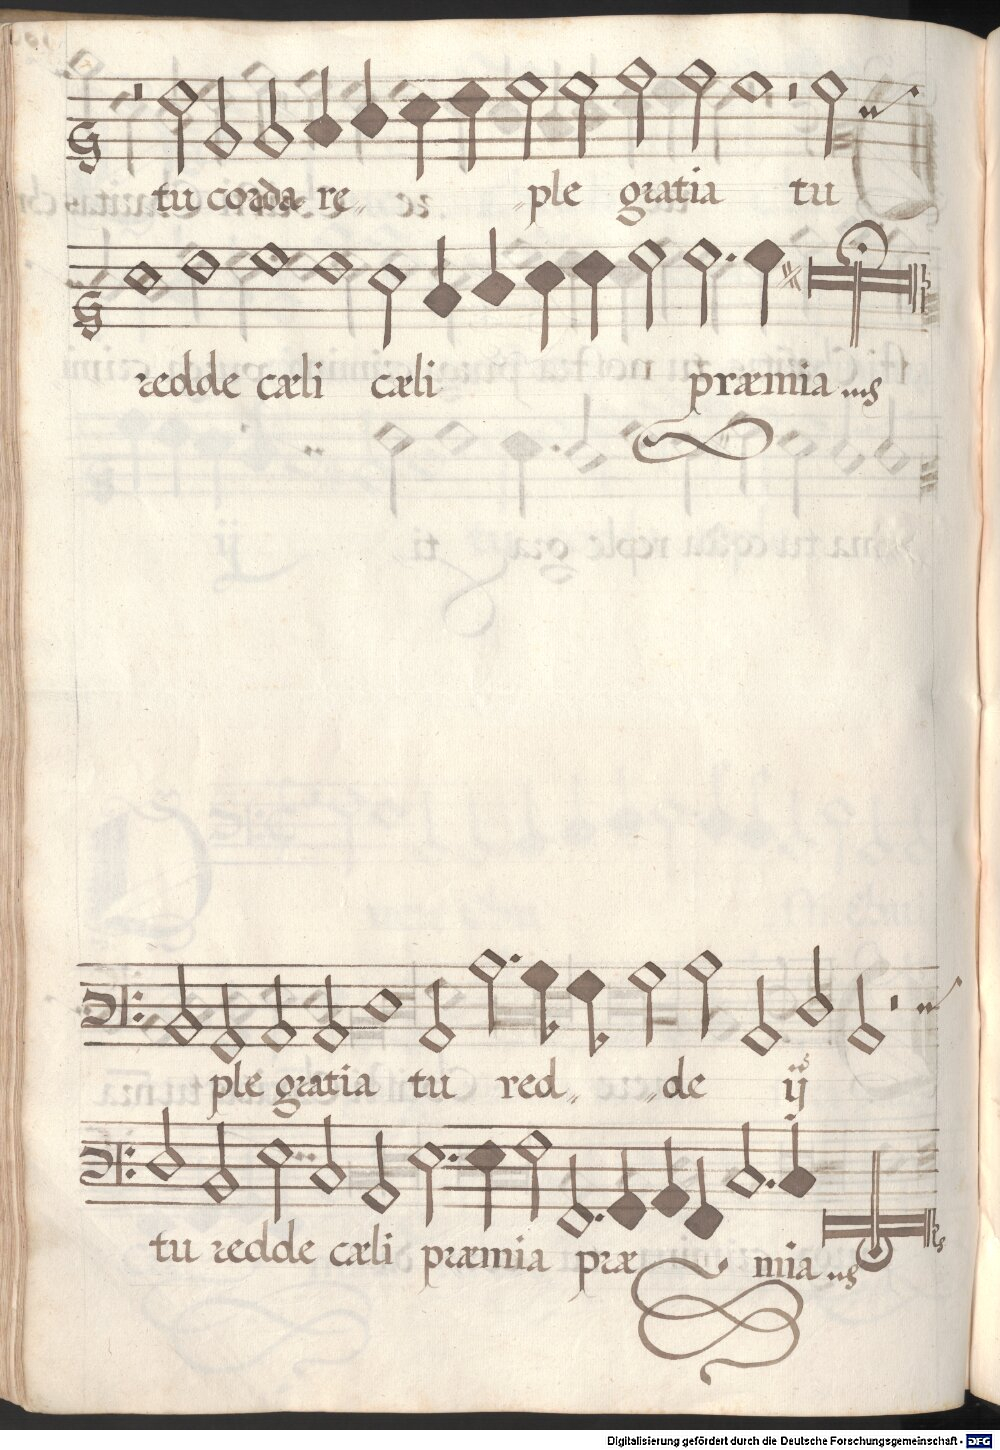 tu corda re„ „ple gratia tu
redde cæli cæli præmia
ple gratia tu red„ „de ij
tu redde cæli præmia præ mia
Digitalisierung gefördert durch die Deutsche Forschungsgemeinschaft - DFG